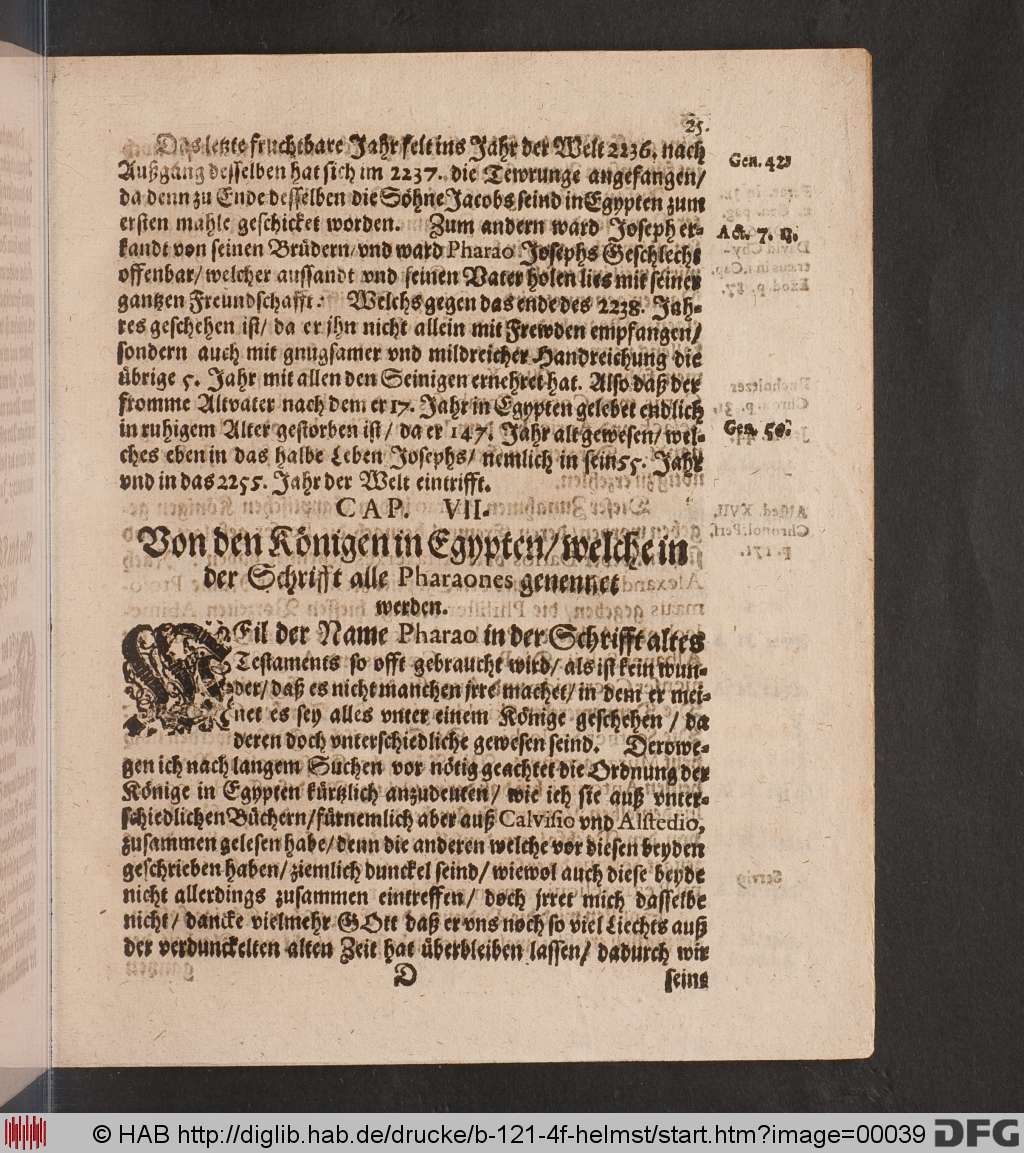 25.
Das letzte fruchtbare Jahr felt ins Jahr der Welt 2236. nach
Gen. 42.
Außgang desselben hat sich im 2237. die Tewrunge angefangen/
da denn zu Ende desselben die Söhne Jacobs seind in Egypten zum
ersten mahle geschicket worden. Zum andern ward Joseph er-
Act. 7. 13.
kandt von seinen Brüdern/ vnd ward Pharao Josephs Geschlecht
offenbar/ welcher aussandt vnd seinen Vater holen lies mit seiner
gantzen Freundschafft: Welchs gegen das ende des 2238. Jah-
res geschehen ist/ da er jhn nicht allein mit Frewden empfangen/
sondern auch mit gnugsamer vnd mildreicher Handreichung die
übrige 5. Jahr mit allen den Seinigen ernehret hat. Also daß der
fromme Altvater nach dem er 17. Jahr in Egypten gelebet endlich
in ruhigem Alter gestorben ist/ da er 147. Jahr alt gewesen/ wel-
Gen. 50.
ches eben in das halbe Leben Josephs/ nemlich in sein 55. Jahr
vnd in das 2255. Jahr der Welt eintrifft.
CAP. VII.
Von den Königen in Egypten/ welche in
der Schrifft alle Pharaones genennet
werden.
WEil der Name Pharao in der Schrifft altes
Testaments so offt gebraucht wird/ als ist kein wun-
der/ daß es nicht manchen jrre machet/ in dem er mei-
net es sey alles vnter einem Könige geschehen / da
deren doch vnterschiedliche gewesen seind. Derowe-
gen ich nach langem Suchen vor nötig geachtet die Ordnung der
Könige in Egypten kürtzlich anzudeuten/ wie ich sie auß vnter-
schiedlichen Büchern/ fürnemlich aber auß Calvisio vnd Alstedio,
zusammen gelesen habe/ denn die anderen welche vor diesen beyden
geschrieben haben/ ziemlich dunckel seind/ wiewol auch diese beyde
nicht allerdings zusammen eintreffen/ doch jrret mich dasselbe
nicht/ dancke vielmehr GOtt daß er vns noch so viel Liechts auß
der verdunckelten alten Zeit hat überbleiben lassen/ dadurch wir
D
seine
© HAB http://diglib.hab.de/drucke/b-121-4f-helmst/start.htm?image=00039
DFG